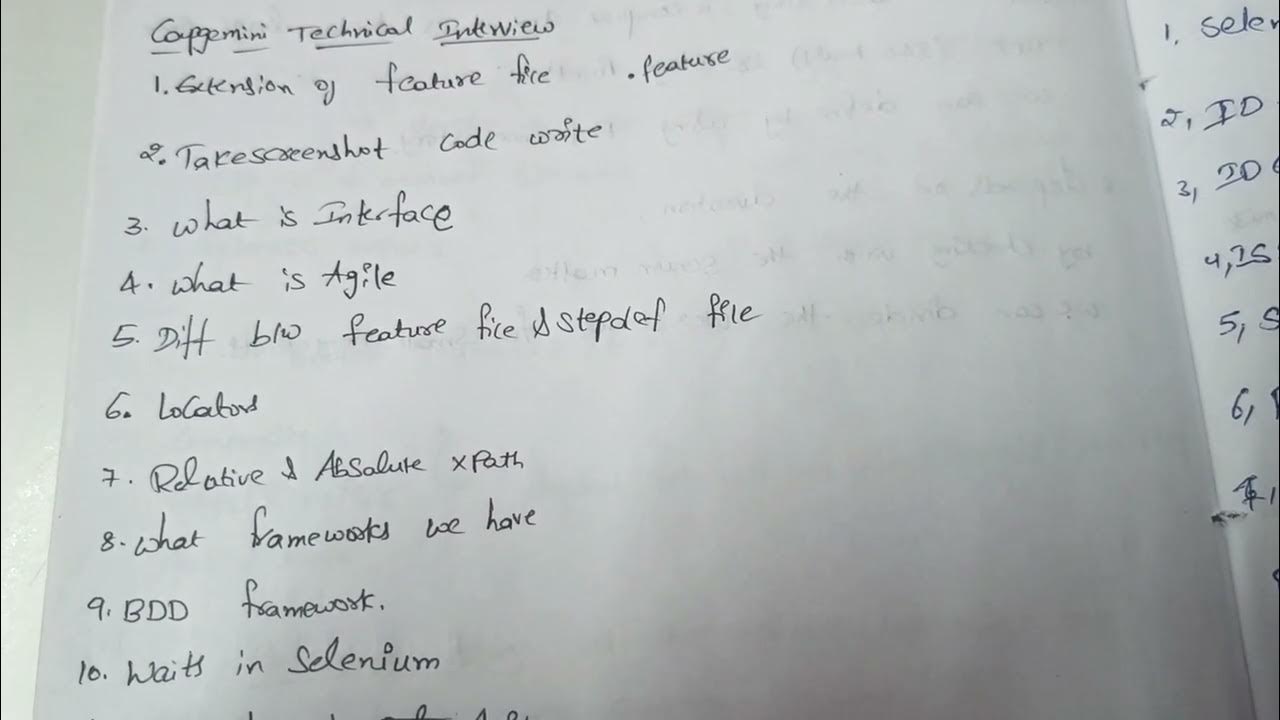 Capgemini Technical Interview
1. Extension of feature file .feature
2. Takescreenshot code write
3. What is Interface
4. What is Agile
5. Diff b/w feature file & stepdef file
6. Locators
7. Relative & Absolute XPath
8. What frameworks we have
9. BDD framework.
10. Waits in Selenium
1. Selen
2, ID
3, ID
4, IS
5, S
6,